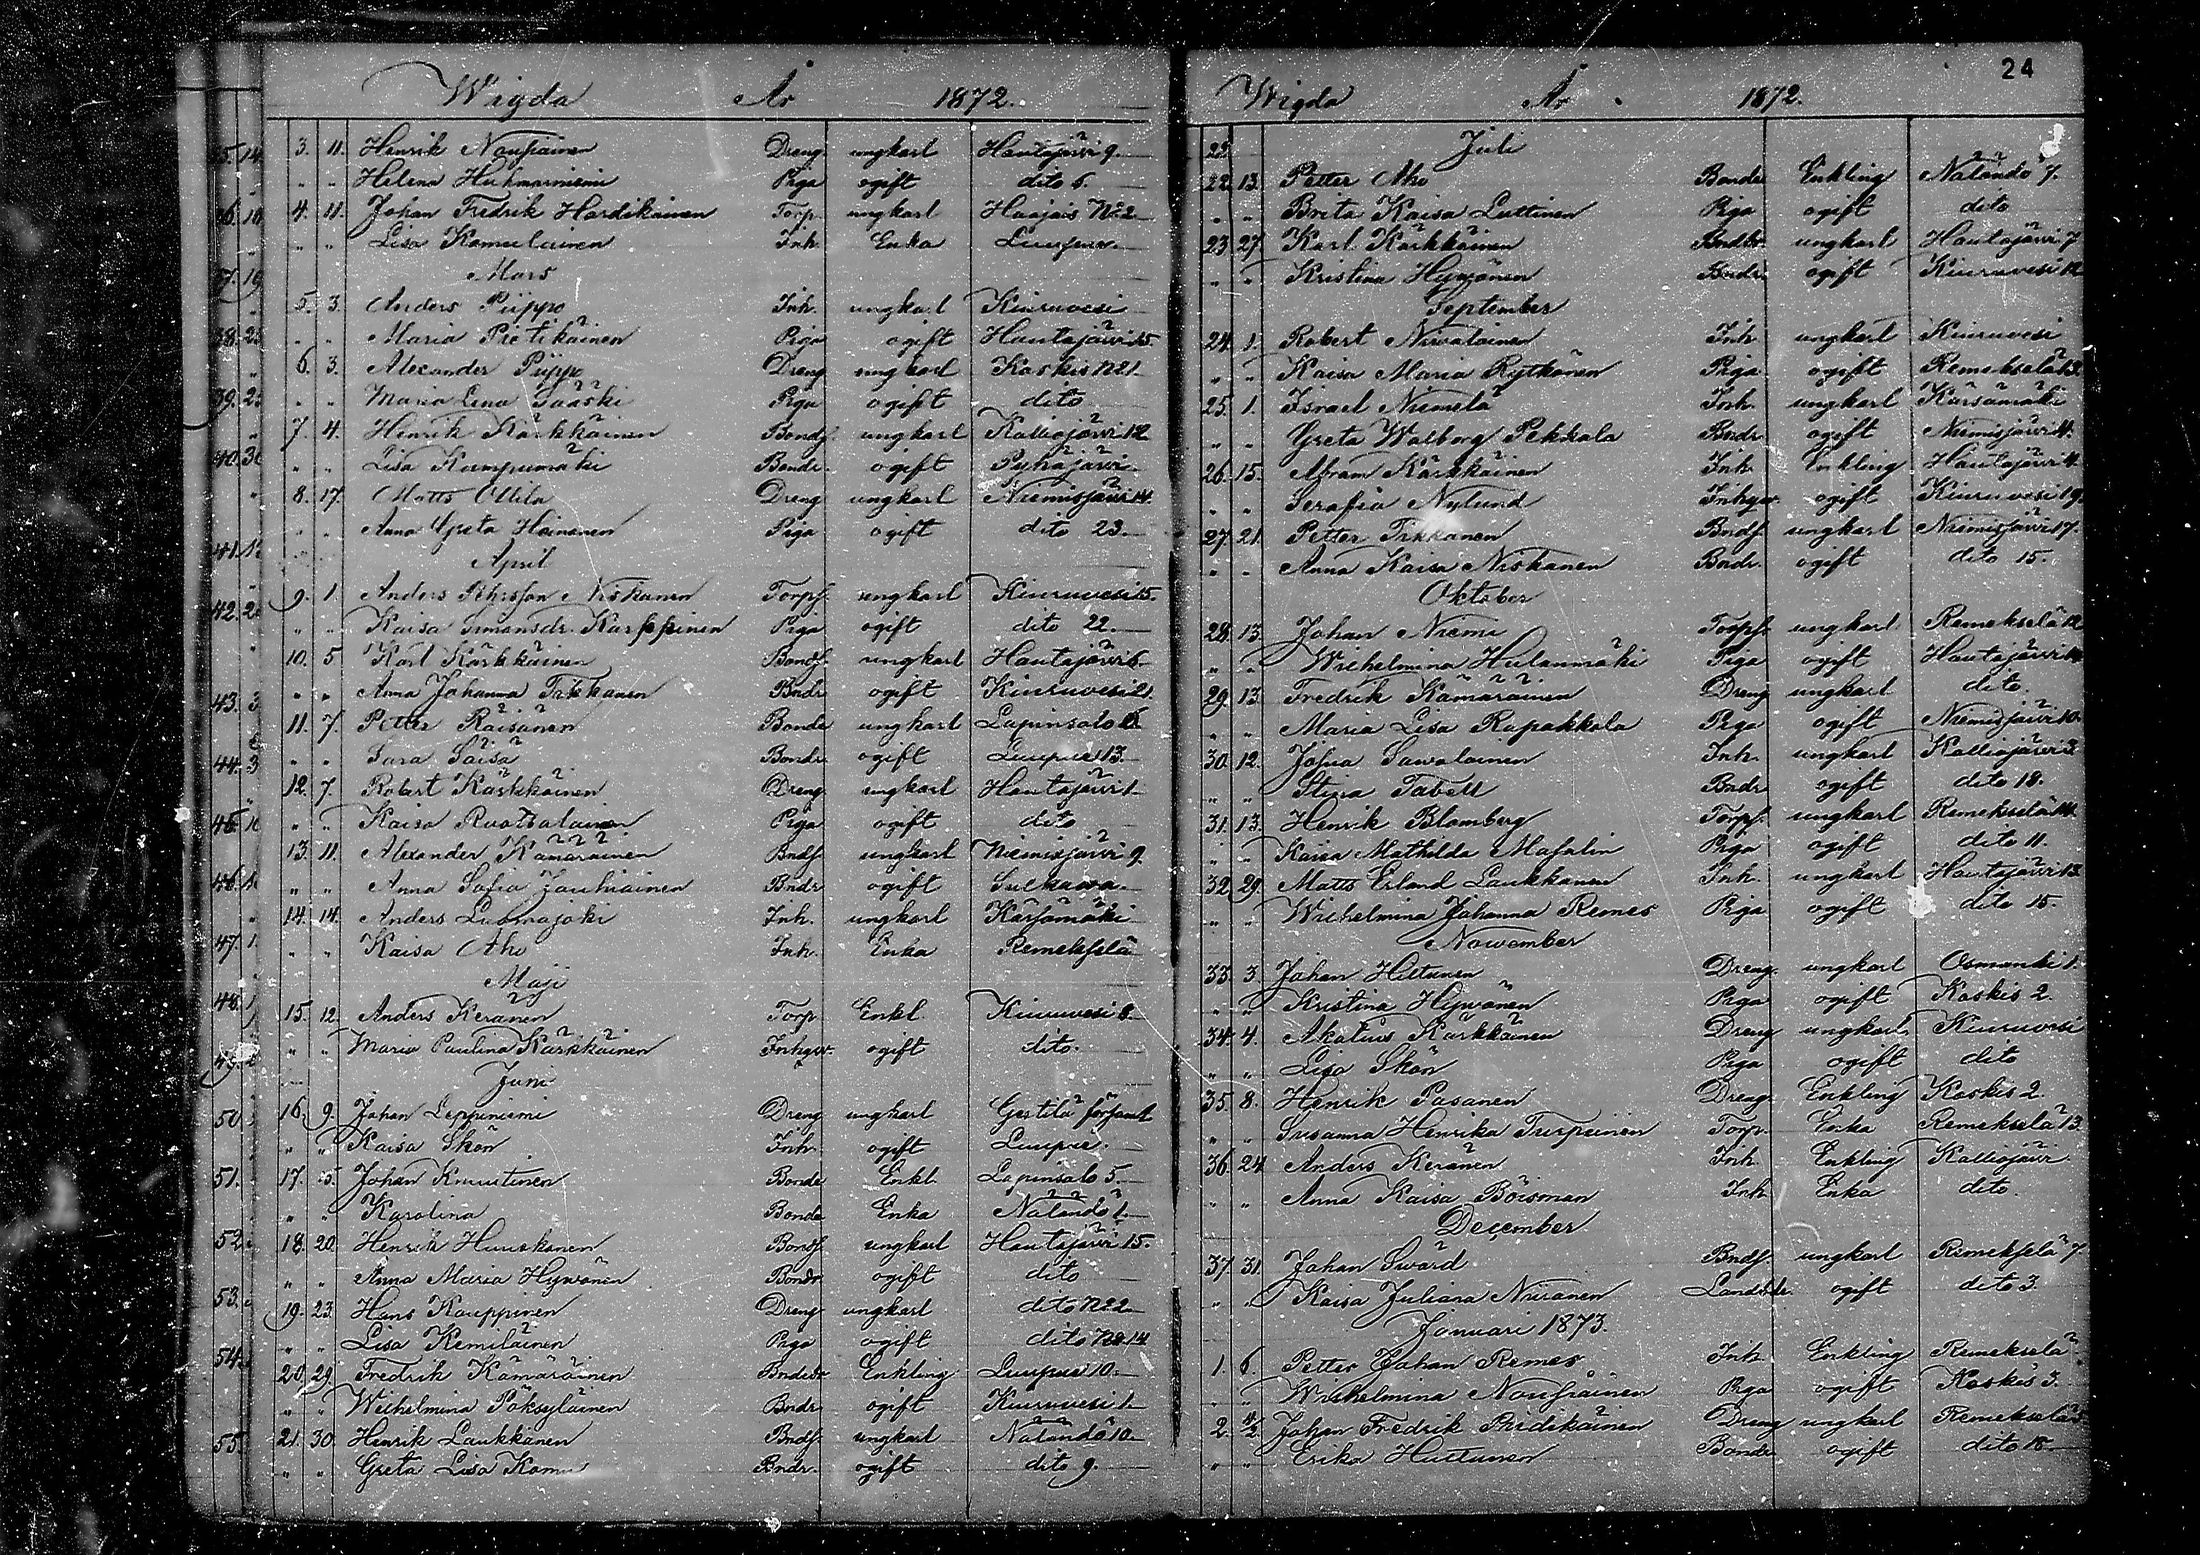 24
Wigda År 1872.
3. 11. Henrik Nousiainen Dreng ungkarl Hautajärvi 9.
" " Helena Huhmarniemi Piga ogift dito 6.
4. 11. Johan Fredrik Hardikainen Torp. ungkarl Haajais No 2
" " Lisa Komulainen Inh. Enka Luupue
Mars
5. 3. Anders Piippo Inh. ungkarl Kiuruvesi
" " Maria Pietikäinen Piga ogift Hautajärvi 15
6. 3. Alexander Piippo Dreng ungkarl Koskis No 1
" " Maria Lena Jääski Piga ogift dito
7. 4. Henrik Kärkkäinen Bondf. ungkarl Kalliojärvi 12
" " Lisa Kumpumäki Bondr. ogift Pyhäjärvi
8. 17. Matts Ollila Dreng ungkarl Niemisjärvi 14.
" " Anna Greta Heinonen Piga ogift dito 23.
April
9. 1. Anders Pehrsson Niskanen Torpf. ungkarl Kiuruvesi 15.
" " Kaisa Simonsdr. Karppinen Piga ogift dito 22.
10. 5. Karl Kärkkäinen Bondf. ungkarl Hautajärvi 6.
" " Anna Johanna Tikkanen Bndr. ogift Kiuruvesi 21
11. 7. Petter Räisänen Bonde ungkarl Lapinsalo
" " Sara Säisä Bondr. ogift Luupue 13.
12. 7. Robert Kärkkäinen Dreng ungkarl Hautajärvi 1.
" " Kaisa Ruotsalainen Piga ogift dito
13. 11. Alexander Kämäräinen Bndf. ungkarl Niemisjärvi 9.
" " Anna Sofia Jauhiainen Bndr. ogift Sulkawa
14. 14. Anders Luomajoki Inh. ungkarl Kärsämäki
" " Kaisa Aho Inh. Enka Remekselä
Maji
15. 12. Anders Keränen Torp Enkl. Kiuruvesi 8.
" " Maria Paulina Kärkkäinen Inhysv. ogift dito.
Juni
16. 9. Johan Leppiniemi Dreng ungkarl Gestilä församl
" " Kaisa Skön Inh. ogift Luupue.
17. 15. Johan Knuutinen Bonde Enkl. Lapinsalo 5.
" " Karolina Bonde Enka Näläntö 1.
18. 20. Henrik Huuskonen Bondf. ungkarl Hautajärvi 15.
" " Anna Maria Hyvönen Bondr. ogift dito
19. 23. Hans Kauppinen Dreng ungkarl dito No 2
" " Lisa Kemiläinen Piga ogift dito No 14
20. 29. Fredrik Kämäräinen Enkling Luupue 10.
" " Wilhelmina Pöksyläinen Bndr. ogift Kiuruvesi 1.
21. 30. Henrik Laukkanen Bndf. ungkarl Näläntö 10.
" " Greta Lisa Komu Bndr. ogift dito 9.
Wigda År 1872.
Juli
22. 13. Petter Aho Bonde Enkling Näläntö 7.
" " Breta Kaisa Luttinen Piga ogift dito
23. 27. Karl Kärkkäinen ungkarl Hautajärvi 7
" " Kristina Hyvönen Bndr. ogift Kiuruvesi 12
September
24. 1. Robert Niwalainen Inh ungkarl Kiuruvesi
" " Kaisa Maria Rytkönen Piga ogift Remekselä 12.
25. 1. Israel Niemelä Inh. ungkarl Kärsämäki
" " Greta Walborg Pekkala Bndr. ogift Niemisjärvi 4.
26. 15. Abram Kärkkäinen Inh. Enkling Hautajärvi 4.
" " Serafia Nylund Inhysv. ogift Kiuruvesi 19.
27. 21. Petter Tikkanen Bndf. ungkarl Niemisjärvi 17.
" " Anna Kaisa Niskanen Bndr. ogift dito 15.
Oktober
28. 13. Johan Niemi Torpf. ungkarl Remekselä 12
" " Wilhelmina Hulanmäki Piga ogift Hautajärvi
29. 13. Fredrik Kämäräinen Dreng ungkarl dito.
" " Maria Lisa Rapakkola Piga ogift Niemisjärvi 10.
30. 12. Josua Sawolainen Inh. ungkarl Kalliojärvi 3.
" " Stina Tabell Bndr. ogift dito 18.
31. 13. Henrik Blomberg Torpf. ungkarl Remekselä 14.
" " Kaisa Mathilda Masalin Piga ogift dito 11.
32. 29. Matts Erland Laukkanen Inh. ungkarl Hautajärvi 13
" " Wilhelmina Johanna Remes Piga ogift dito 15.
Nowember
33. 3. Johan Hiltunen Dreng. ungkarl Osmanki 1.
" " Kristina Hyvönen Piga ogift Koskis 2.
34. 4. Akatius Kärkkäinen Dreng ungkarl Kiuruvesi
" " Lisa Skön Piga ogift dito
35. 8. Henrik Pasanen Dreng. Enkling Koskis 2.
" " Susanna Henrika Turpeinen Torp. Enka Remekselä 13.
36. 24. Anders Keränen Inh. Enkling Kalliojärvi
" " Anna Kaisa Böisman Inh. Enka dito.
December
37. 31. Johan Swärd Bndf. ungkarl Remekselä 7.
" " Kaisa Juliana Niiranen ogift dito 3.
Januari 1873.
1. 6. Petter Johan Remes Inh Enkling Remekselä
" " Wilhelmina Nousiainen Piga ogift Koskis 3.
2. Johan Fredrik Pudikäinen Dreng ungkarl Remekselä
" " Erika Huttunen Bondr ogift dito 18.